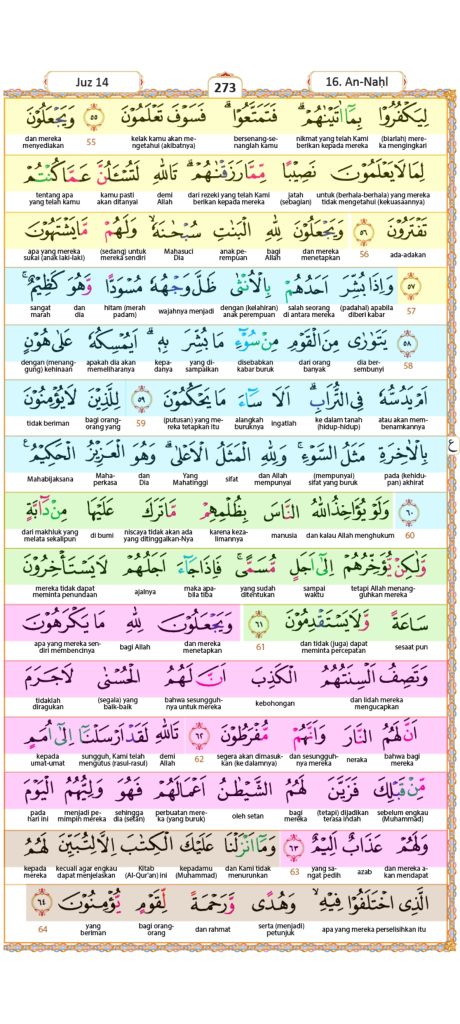 Juz 14
273
16. An-Naḥl
لِيَكْفُرُوْا بِمَآ اٰتَيْنٰهُمْ ۗ فَتَمَتَّعُوْا ۗ فَسَوْفَ تَعْلَمُوْنَ ٥٥ وَيَجْعَلُوْنَ
(biarlah) mereka mengingkari nikmat yang telah Kami berikan kepada mereka bersenang-senanglah kamu kelak kamu akan mengetahui (akibatnya) 55 dan mereka menyediakan
لِمَا لَا يَعْلَمُوْنَ نَصِيْبًا مِّمَّا رَزَقْنٰهُمْ ۗ تَاللّٰهِ لَتُسْـَٔلُنَّ عَمَّا كُنْتُمْ
untuk (berhala-berhala) yang mereka tidak mengetahui (kekuasaannya) jatah (sebagian) dari rezeki yang telah Kami berikan kepada mereka demi Allah kamu pasti akan ditanyai tentang apa yang telah kamu
تَفْتَرُوْنَ ٥٦ وَيَجْعَلُوْنَ لِلّٰهِ الْبَنٰتِ سُبْحٰنَهٗ ۙ وَلَهُمْ مَّا يَشْتَهُوْنَ
ada-adakan 56 dan mereka menetapkan bagi Allah anak perempuan Mahasuci Dia (sedang) untuk mereka sendiri apa yang mereka sukai (anak laki-laki)
وَاِذَا بُشِّرَ اَحَدُهُمْ بِالْاُنْثٰى ظَلَّ وَجْهُهٗ مُسْوَدًّا وَّهُوَ كَظِيْمٌ ۚ ٥٧
(padahal) apabila diberi kabar salah seorang di antara mereka dengan (kelahiran) anak perempuan wajahnya menjadi hitam (merah padam) dan dia sangat marah 57
يَتَوَارٰى مِنَ الْقَوْمِ مِنْ سُوْۤءِ مَا بُشِّرَ بِهٖ ۗ اَيُمْسِكُهٗ عَلٰى هُوْنٍ ٥٨
dia bersembunyi dari orang banyak disebabkan kabar buruk yang disampaikan kepadanya apakah dia akan memeliharanya dengan (menanggung) kehinaan 58
اَمْ يَدُسُّهٗ فِى التُّرَابِ ۗ اَلَا سَاۤءَ مَا يَحْكُمُوْنَ ٥٩ لِلَّذِيْنَ لَا يُؤْمِنُوْنَ
atau akan membenamkannya ke dalam tanah (hidup-hidup) ingatlah alangkah buruknya (putusan) yang mereka tetapkan itu 59 bagi orang-orang yang tidak beriman
بِالْاٰخِرَةِ مَثَلُ السَّوْءِ ۚ وَلِلّٰهِ الْمَثَلُ الْاَعْلٰى ۗ وَهُوَ الْعَزِيْزُ الْحَكِيْمُ ۚ
pada (kehidupan) akhirat (mempunyai) sifat yang buruk dan Allah mempunyai sifat Yang Mahatinggi dan Dia Mahaperkasa Mahabijaksana
ع
وَلَوْ يُؤَاخِذُ اللّٰهُ النَّاسَ بِظُلْمِهِمْ مَّا تَرَكَ عَلَيْهَا مِنْ دَاۤبَّةٍ ٦٠
dan kalau Allah menghukum manusia karena kezalimannya niscaya tidak akan ada yang ditinggalkan-Nya di bumi dari makhluk yang melata sekalipun 60
وَّلٰكِنْ يُّؤَخِّرُهُمْ اِلٰٓى اَجَلٍ مُّسَمًّى ۚ فَاِذَا جَاۤءَ اَجَلُهُمْ لَا يَسْتَأْخِرُوْنَ
tetapi Allah menangguhkan mereka sampai waktu yang sudah ditentukan maka apabila tiba ajalnya mereka tidak dapat meminta penundaan
سَاعَةً وَّلَا يَسْتَقْدِمُوْنَ ٦١ وَيَجْعَلُوْنَ لِلّٰهِ مَا يَكْرَهُوْنَ
sesaat pun dan tidak (juga) dapat meminta percepatan 61 dan mereka menetapkan bagi Allah apa yang mereka sendiri membencinya
وَتَصِفُ اَلْسِنَتُهُمُ الْكَذِبَ اَنَّ لَهُمُ الْحُسْنٰى لَا جَرَمَ
dan lidah mereka mengucapkan kebohongan bahwa sesungguhnya untuk mereka (segala) yang baik-baik tidaklah diragukan
اَنَّ لَهُمُ النَّارَ وَاَنَّهُمْ مُّفْرَطُوْنَ ٦٢ تَاللّٰهِ لَقَدْ اَرْسَلْنَآ اِلٰٓى اُمَمٍ
bahwa bagi mereka neraka dan sesungguhnya mereka segera akan dimasukkan (ke dalamnya) 62 demi Allah sungguh, Kami telah mengutus (rasul-rasul) kepada umat-umat
مِّنْ قَبْلِكَ فَزَيَّنَ لَهُمُ الشَّيْطٰنُ اَعْمَالَهُمْ فَهُوَ وَلِيُّهُمُ الْيَوْمَ
sebelum engkau (Muhammad) (tetapi) dijadikan terasa indah bagi mereka oleh setan perbuatan mereka (yang buruk) sehingga dia (setan) menjadi pemimpin mereka pada hari ini
وَلَهُمْ عَذَابٌ اَلِيْمٌ ٦٣ وَمَآ اَنْزَلْنَا عَلَيْكَ الْكِتٰبَ اِلَّا لِتُبَيِّنَ لَهُمُ
dan mereka akan mendapat azab yang sangat pedih 63 dan Kami tidak menurunkan kepadamu (Muhammad) Kitab (Al-Qur'an) ini kecuali agar engkau dapat menjelaskan kepada mereka
الَّذِى اخْتَلَفُوْا فِيْهِ ۙ وَهُدًى وَّرَحْمَةً لِّقَوْمٍ يُّؤْمِنُوْنَ ٦٤
apa yang mereka perselisihkan itu serta (menjadi) petunjuk dan rahmat bagi orang-orang yang beriman 64